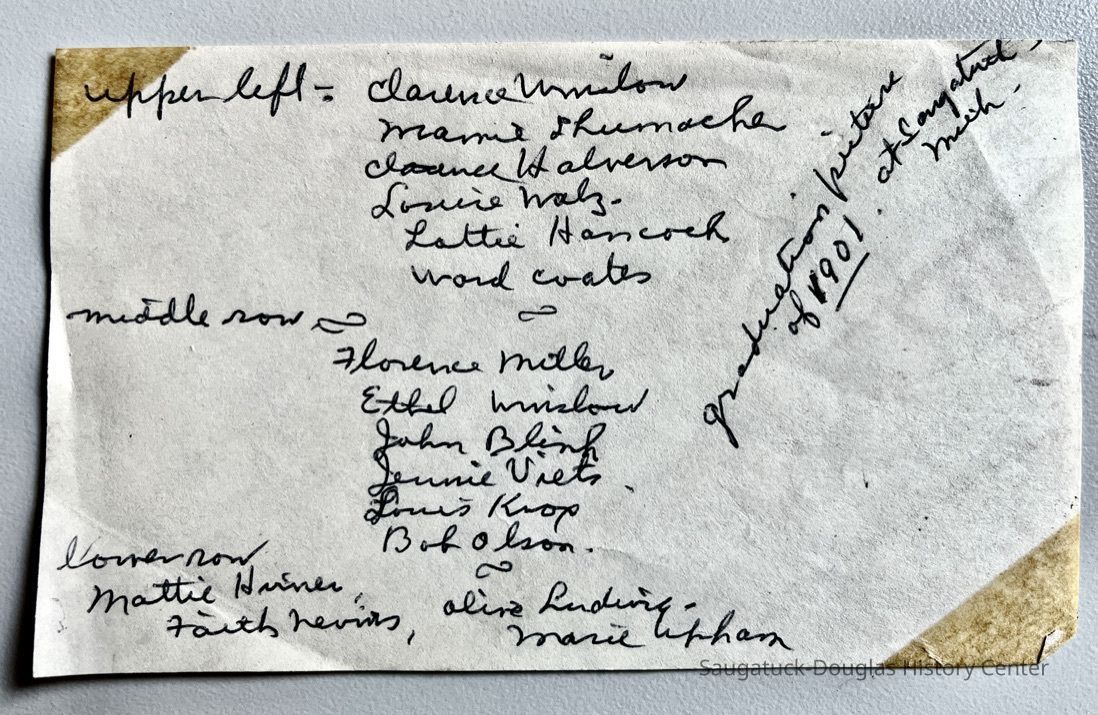 upper left - : Clarence Winslow
Mamie Shumacher
Clarence Halverson
Louise Walz -
Lottie Hancock
Word Coates
middle row
Florence Miller
Ethel Winslow
John Blink
Jennie Viets.
Louis Krop
Bob Olson.
Lower row
Mattie Hirner,
Faith Nevins,
Olive Ludwig -
Marie Upham
graduation picture
of 1901.
at Saugatuck,
Mich.
Saugatuck-Douglas History Center